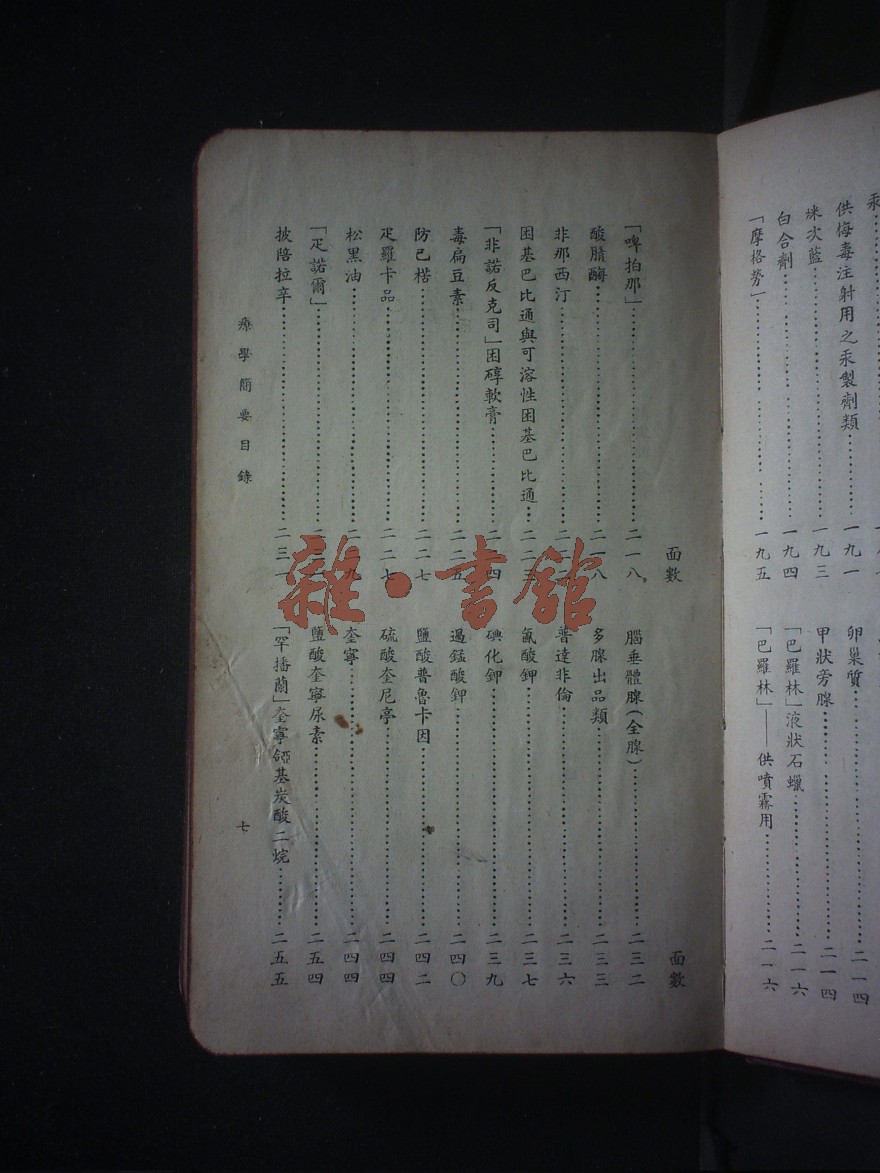 汞
供梅毒注射用之汞製劑類……一九一
次藍……一九三
白合劑……一九四
「摩格勞」……一九五
卵巢質……二一四
甲狀旁腺……二一四
「巴羅林」液狀石蠟……二一六
「巴羅林」——供噴霧用……二一六
面數
「啤拍那」……二一八
酸腈酶……二一八
非那西汀……二二
困基巴比通與可溶性困基巴比通……二二三
「非諾反克司」困醇軟膏……二二四
毒扁豆素……二二五
防己楛……二二七
疋羅卡品……二二七
松黑油……二二九
「疋諾爾」……二
披陪拉辛……二三一
面數
腦垂體腺(全腺)……二三二
多腺出品類……二三三
普達非倫……二三六
氯酸鉀……二三七
碘化鉀……二三九
過錳酸鉀……二四〇
鹽酸普魯卡因……二四二
硫酸奎尼亭……二四四
奎寧……二四四
鹽酸奎寧尿素……二五四
「罕播蘭」奎寧基炭酸二烷……二五五
療學簡要目錄
七
雜·書館